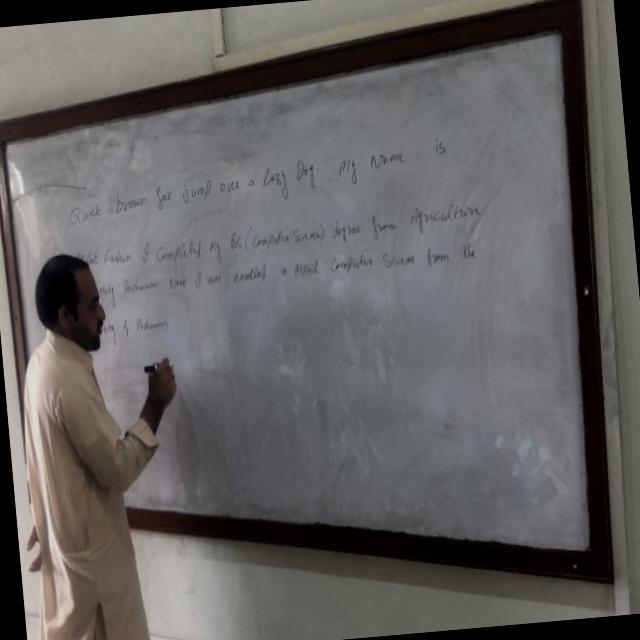 Quick brown fox jump over a lazy Dog. My name is
I Completed my BS (Computer Science) degree from Agriculture
now I am enrolled in MSCS Computer Science from the
of